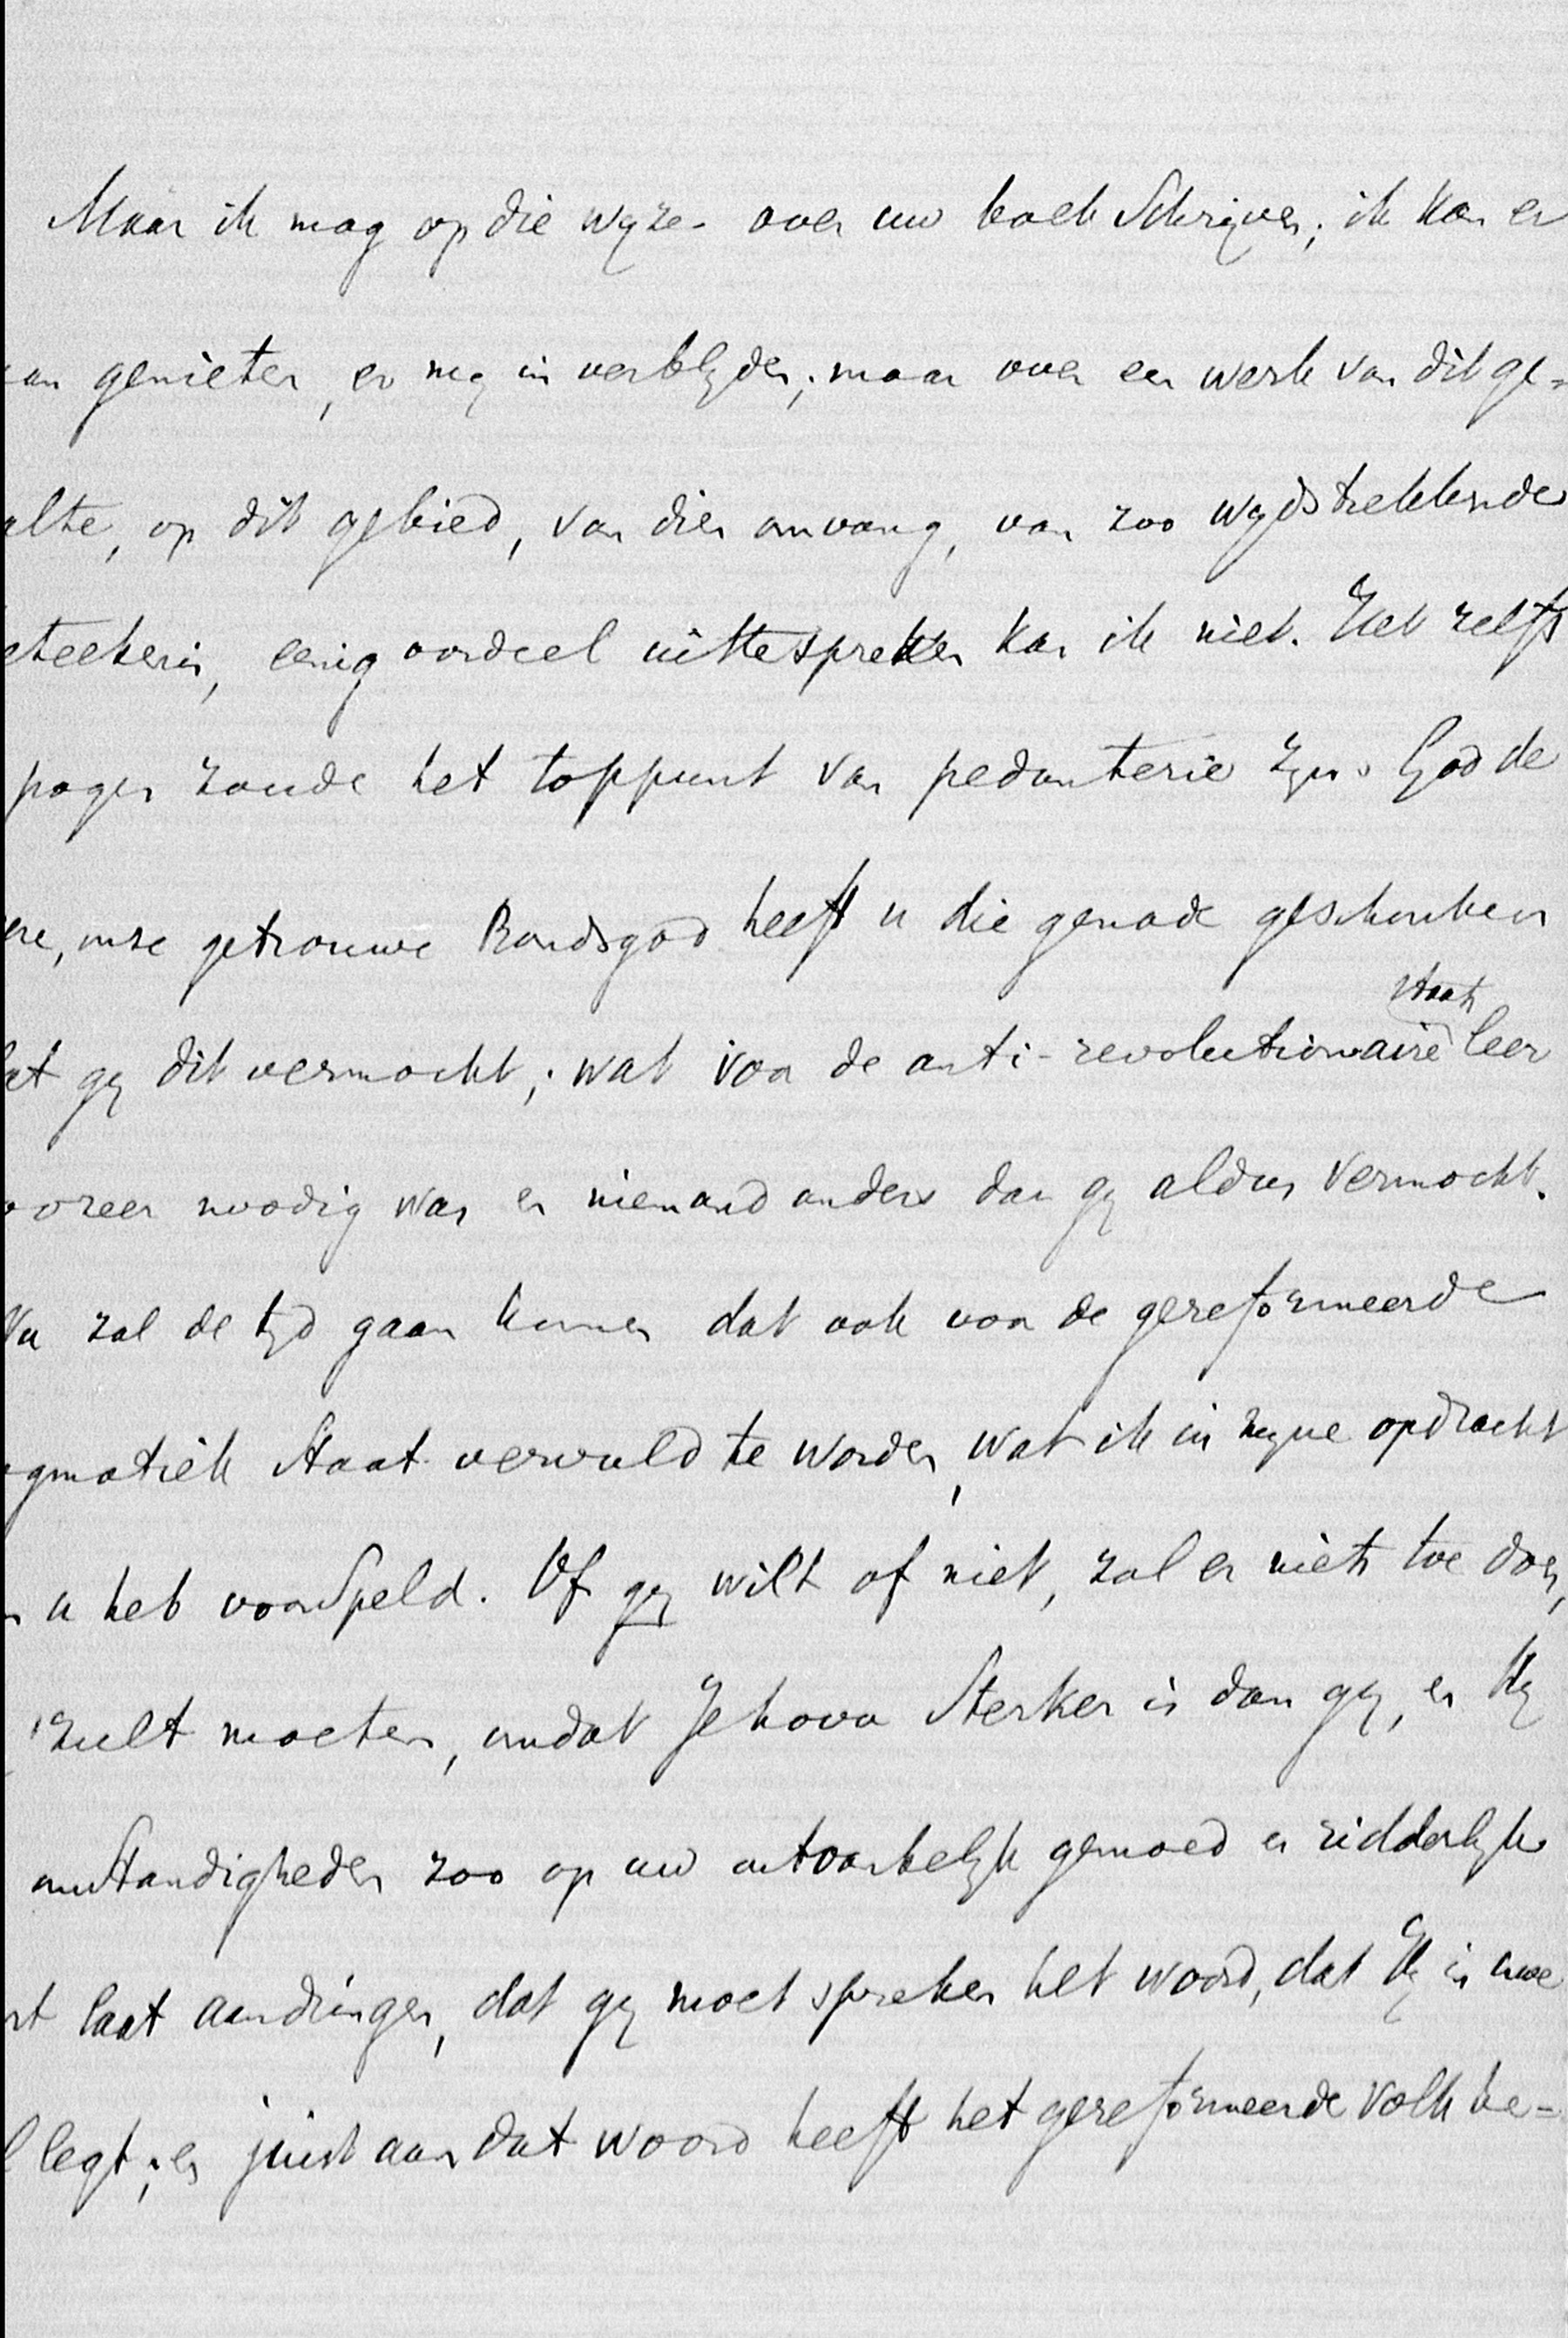 Maar ik mag op die wyze over uw boek schryven; ik kan er
an genieten, er my in verblyden; maar over een werk van dit ge=
alte, op dit gebied, van dien omvang, van zoo wydstrekkende
eteekenis, eenig oordeel uittespreken kan ik niet. Het zelfs
pogen zoude het toppunt van pedanterie zyn. God de
ere, onze getrouwe Bondsgod heeft u die genade geschonken
at gy dit vermocht; wat voor de anti-revolutionaire Staats leer
ooreer noodig was en niemand anders dan gy aldus vermocht.
Nu zal de tyd gaan komen dat ook voor de gereformeerde
ogmatiek staat vervuld te worden, wat ik in myne opdracht
n u heb voorspeld. Of gy wilt of niet, zal er niets toe doen,
zult moeten, omdat Jehova sterker is dan gy, en Hy
omstandigheden zoo op uw ontvankelyk gemoed en ridderlyk
rt laat aandringen, dat gy moet spreken het woord, dat Hy in uwe
l legt; en juist aan dat woord heeft het gereformeerde volk be=